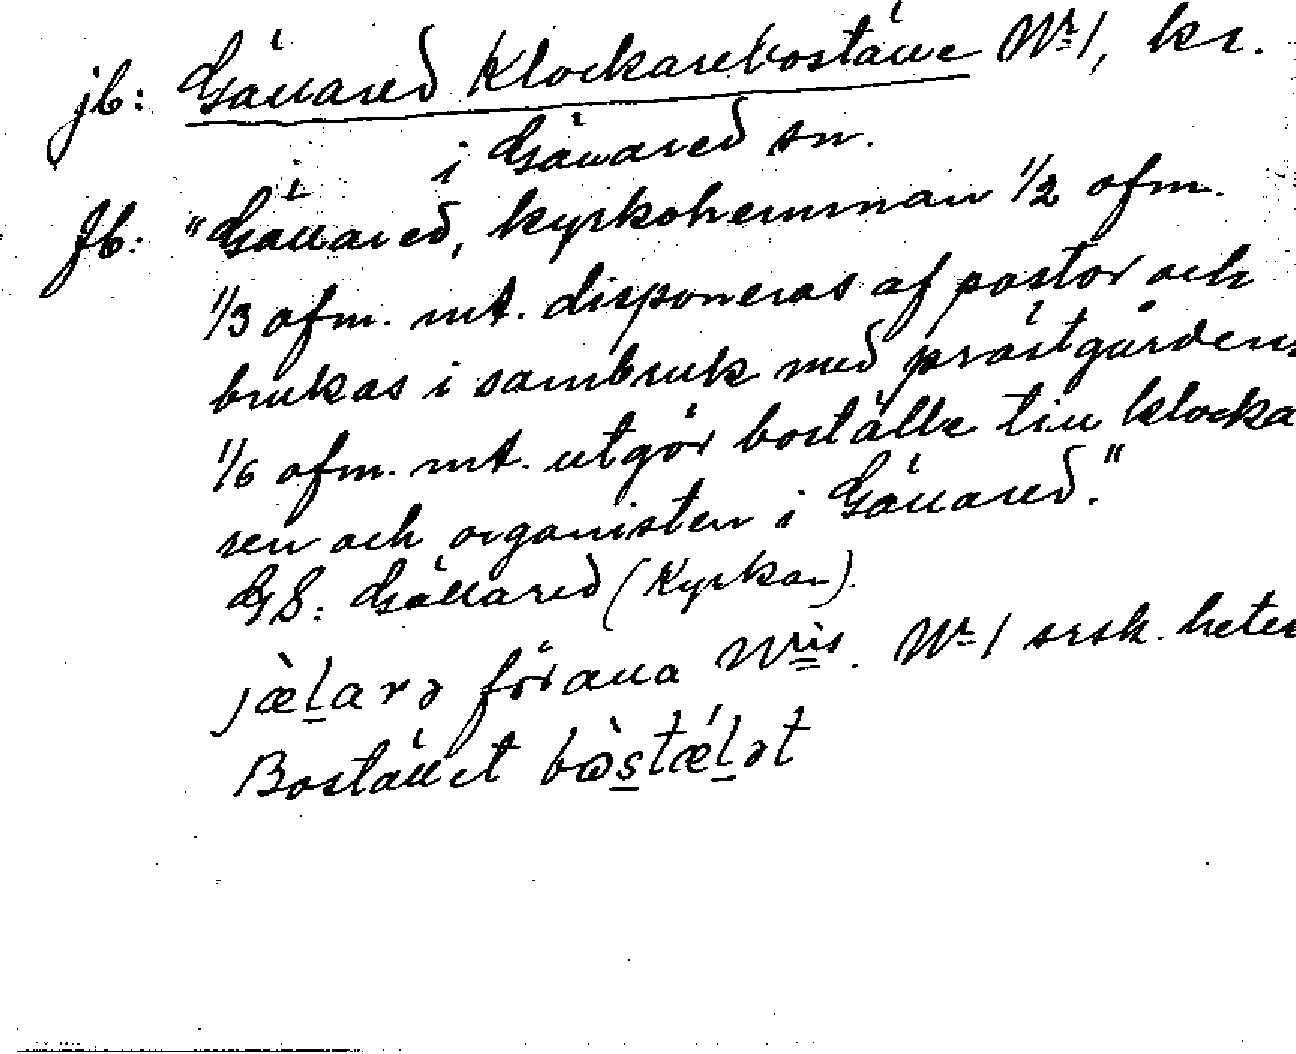 jb: Gällared Klockareboställe Nr 1, kr.
i Gällared sn.
Jb: "Gällared, kyrkohemman 1/2 ofm.
1/3 ofm. mt. disponeras af pastor och
brukas i sambruk med prästgården
1/6 ofm. mt. utgör boställe till klocka
ren och organisten i Gällared."
GS: Gällared (Kyrkan).
jæ̀l̠arə för alla Nris. Nr 1 srsk. heter
Bostället bòs̠tǽl̠ət